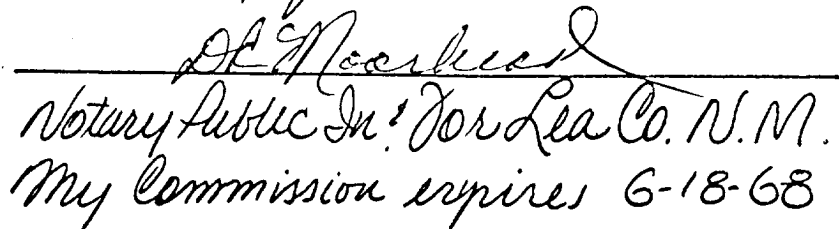 D E Moorhead
Notary Public In & For Lea Co. N. M.
My Commission expires 6-18-68